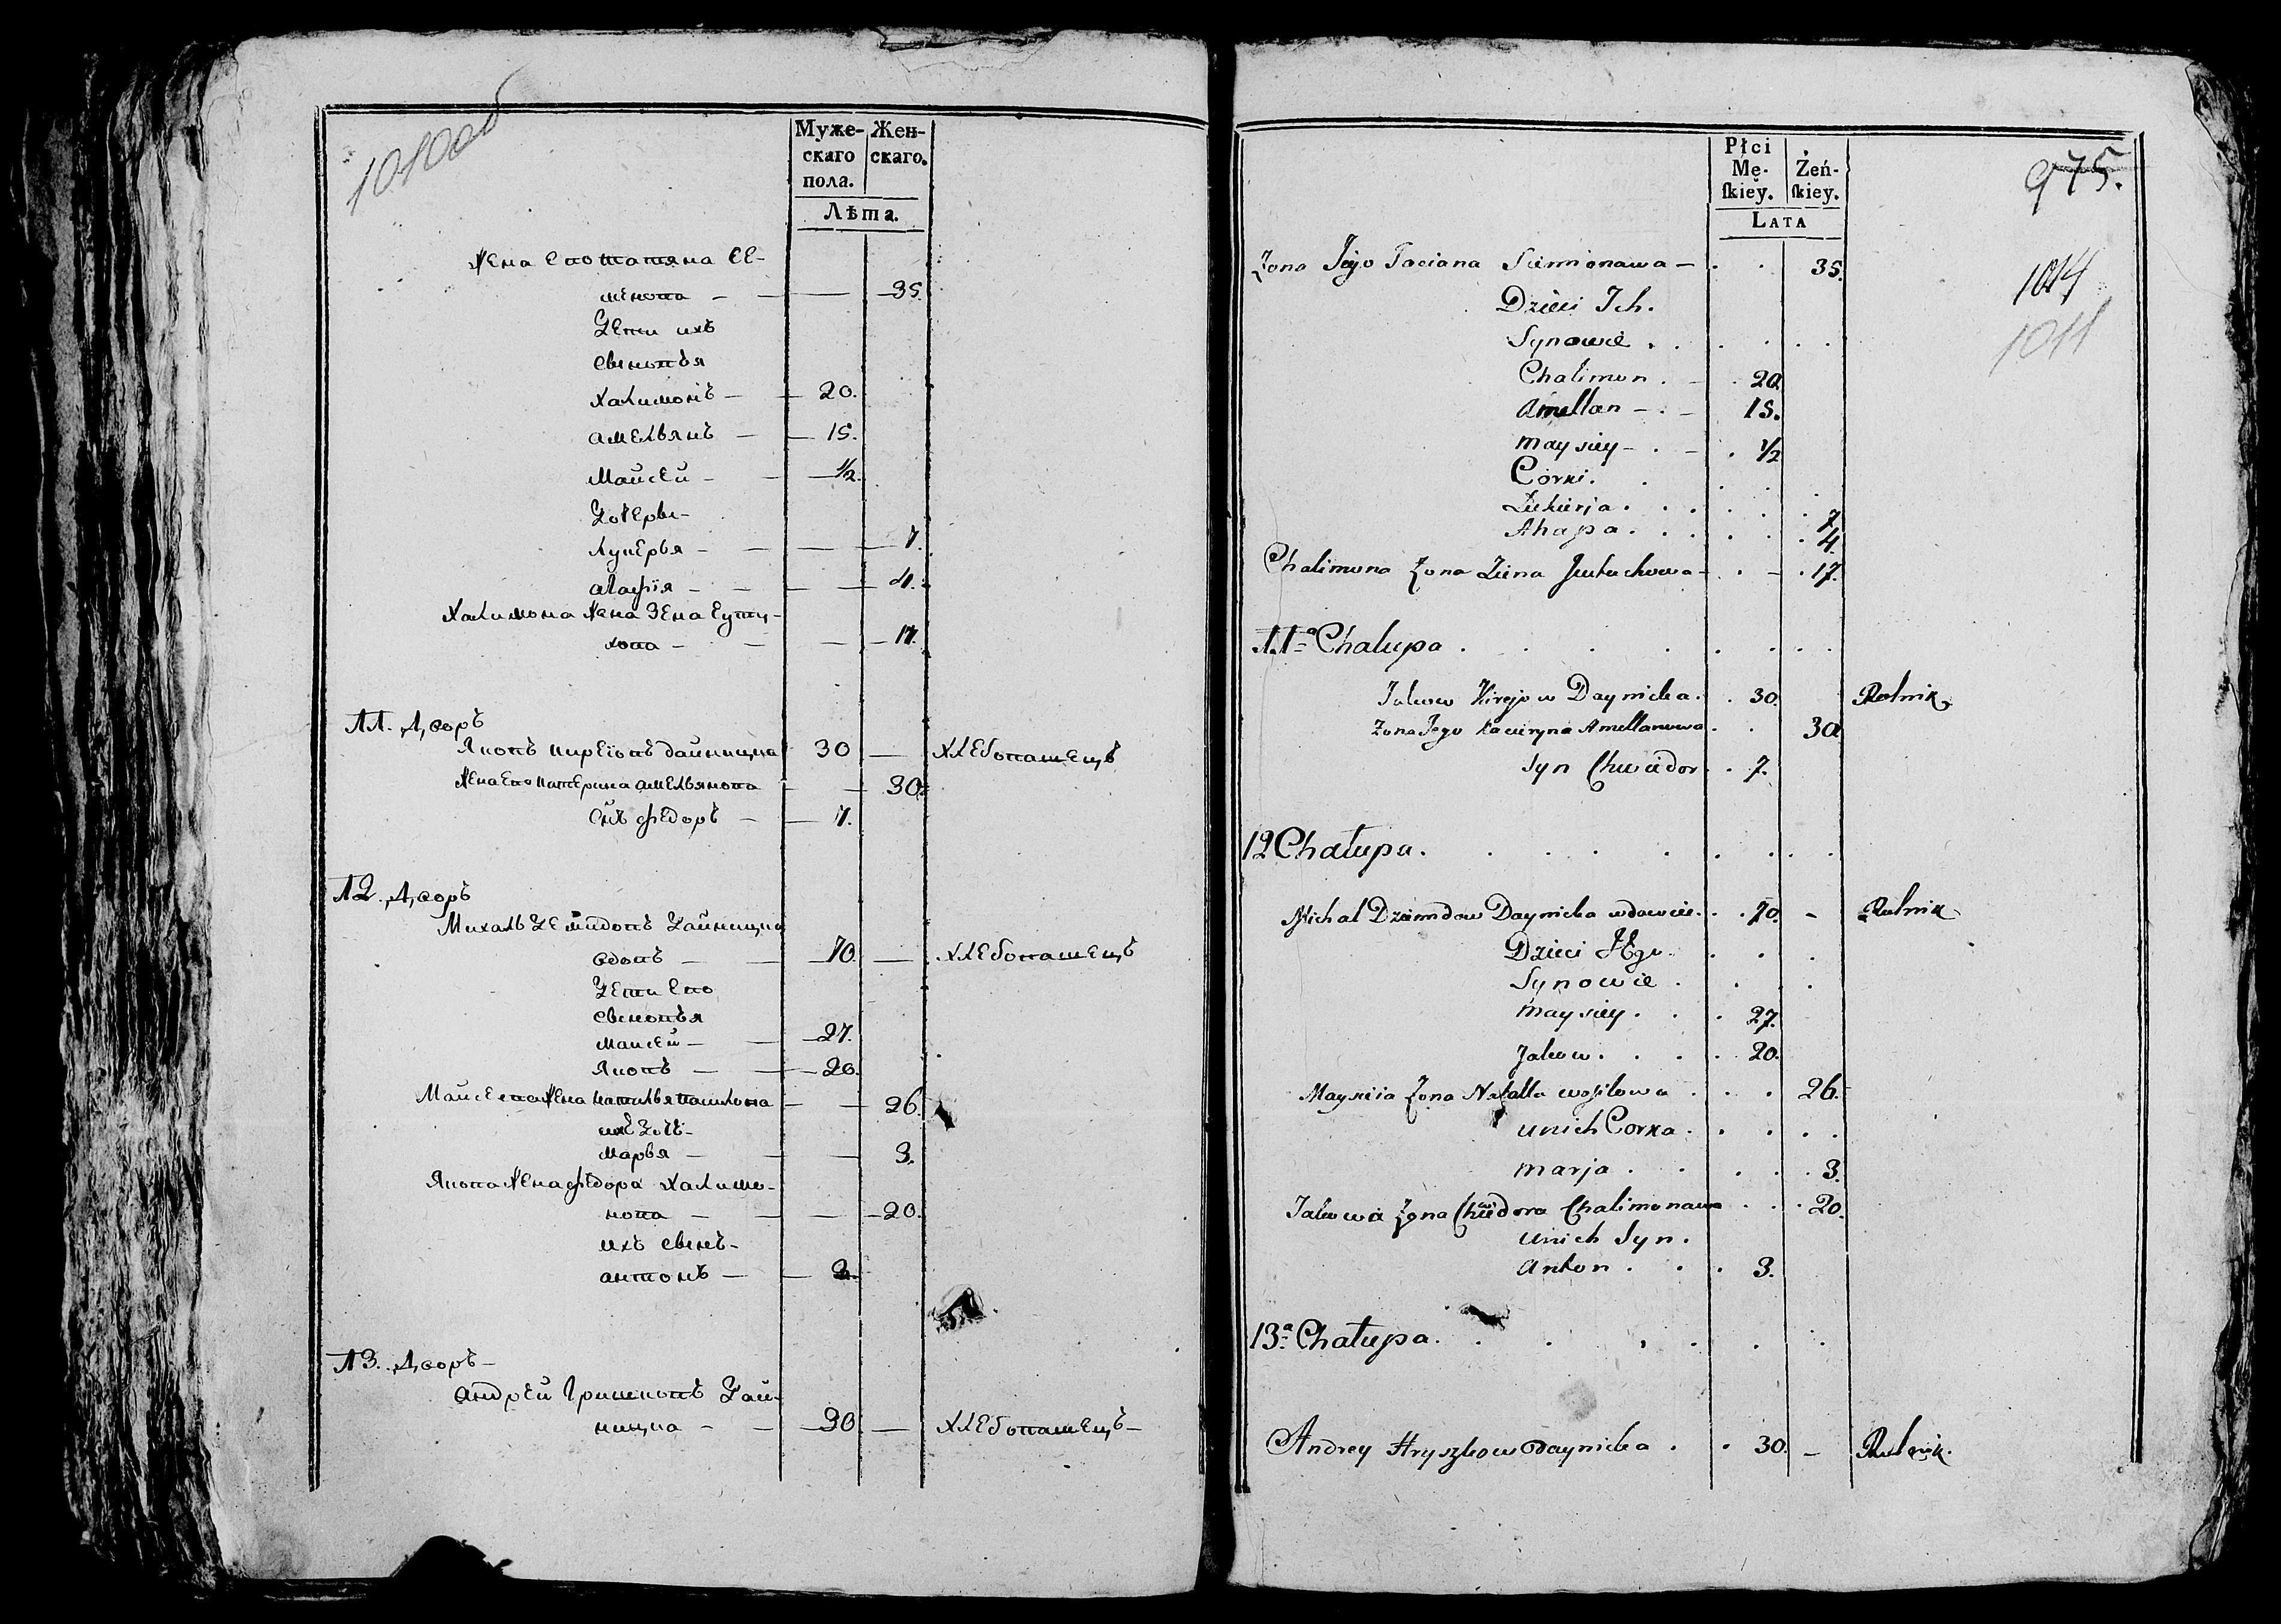 1010 об
Муже-
скаго
пола.
Жен-
скаго.
Лѣта.
Жена его татяна се-
менова - 35.
Дети ихъ
сыновья
Халимонъ - 20.
амельянъ - 15.
Майсей - ½.
Дочеры-
Лукерья - 7.
агафія - 4.
Халимона жена Зена Евту-
хова - 17.
11. Дворъ
Яковъ киреiовъ дайницка 30 — хлебопашецъ
Жена его катерина амельянова — 30.
Сынъ федоръ - 7.
12. Дворъ
Михаль Демидовъ Дайницка
вдовъ — 70. — хлебопашецъ
Дети его
сыновья
Майсей - 27.
Яковъ — 20.
Майсеева жена наталья васильова — 26.
ихъ дочь-
Марья — 3.
Якова жена федора Халимо-
нова — 20.
ихъ сынъ-
антонъ — 3.
13. Дворъ-
андрей Гришковъ Дай-
ницка - 30. — хлебопашецъ-
Płci
Mę-
skiey.
Żeń-
skiey.
LATA
975.
1014
1011
Żona Jego Taciana Siemionawa - 35.
Dzieci Ich.
Synowie
Chalimon. 20
Amellan - 15.
Maysiey - ½
Corki.
Łukierja. 7.
Ahapa. 4.
Chalimona Żona Ziena Jeutuchowa - 17.
11ª Chalupa
Jakow Kirejow Daynicka. 30. Rolnik
Żona Jego Kaciryna Amellanowa. 30.
Syn Chwiador 7.
12 Chałupa.
Michal Dziemidow Daynicka wdowiec. 70. - Rolnik
Dzieci Jego.
Synowie
Maysiey. 27.
Jakow. 20.
Maysieia Żona Natalla wasilowa 26.
u nich Corka.
Marja 3.
Jakowa Żona Chwiedora Chalimonawa 20.
u nich Syn.
Anton. 3.
13ª Chałupa.
Andrey Hryszkow Daynicka. 30. - Rolnik.